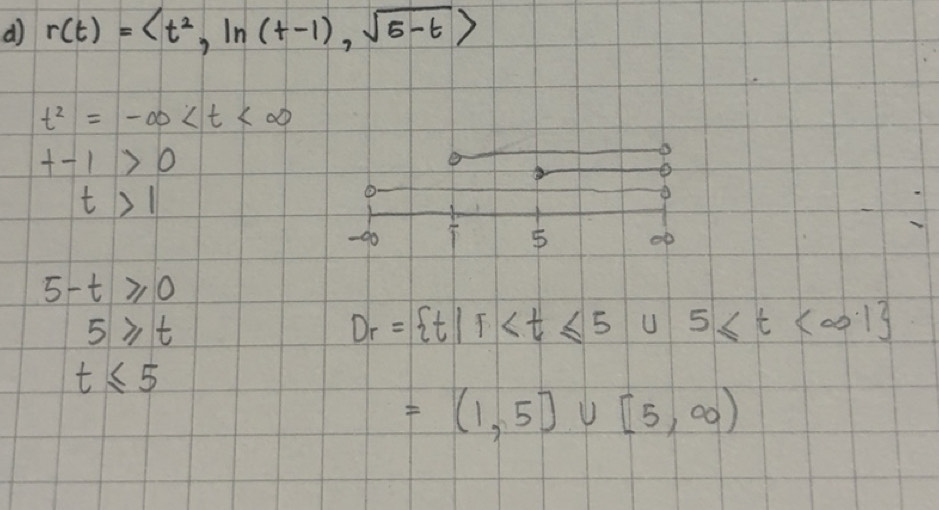 d) r(t) = ⟨t², ln (t-1), √5-t⟩
t² = -∞ < t < ∞
t-1 > 0
t > 1
-∞ 1 5 ∞
5-t ⩾ 0
5 ⩾ t
t ⩽ 5
Dr = {t | 1 < t ⩽ 5 ∪ 5 ⩽ t < ∞ |}
= (1, 5] ∪ [5, ∞)